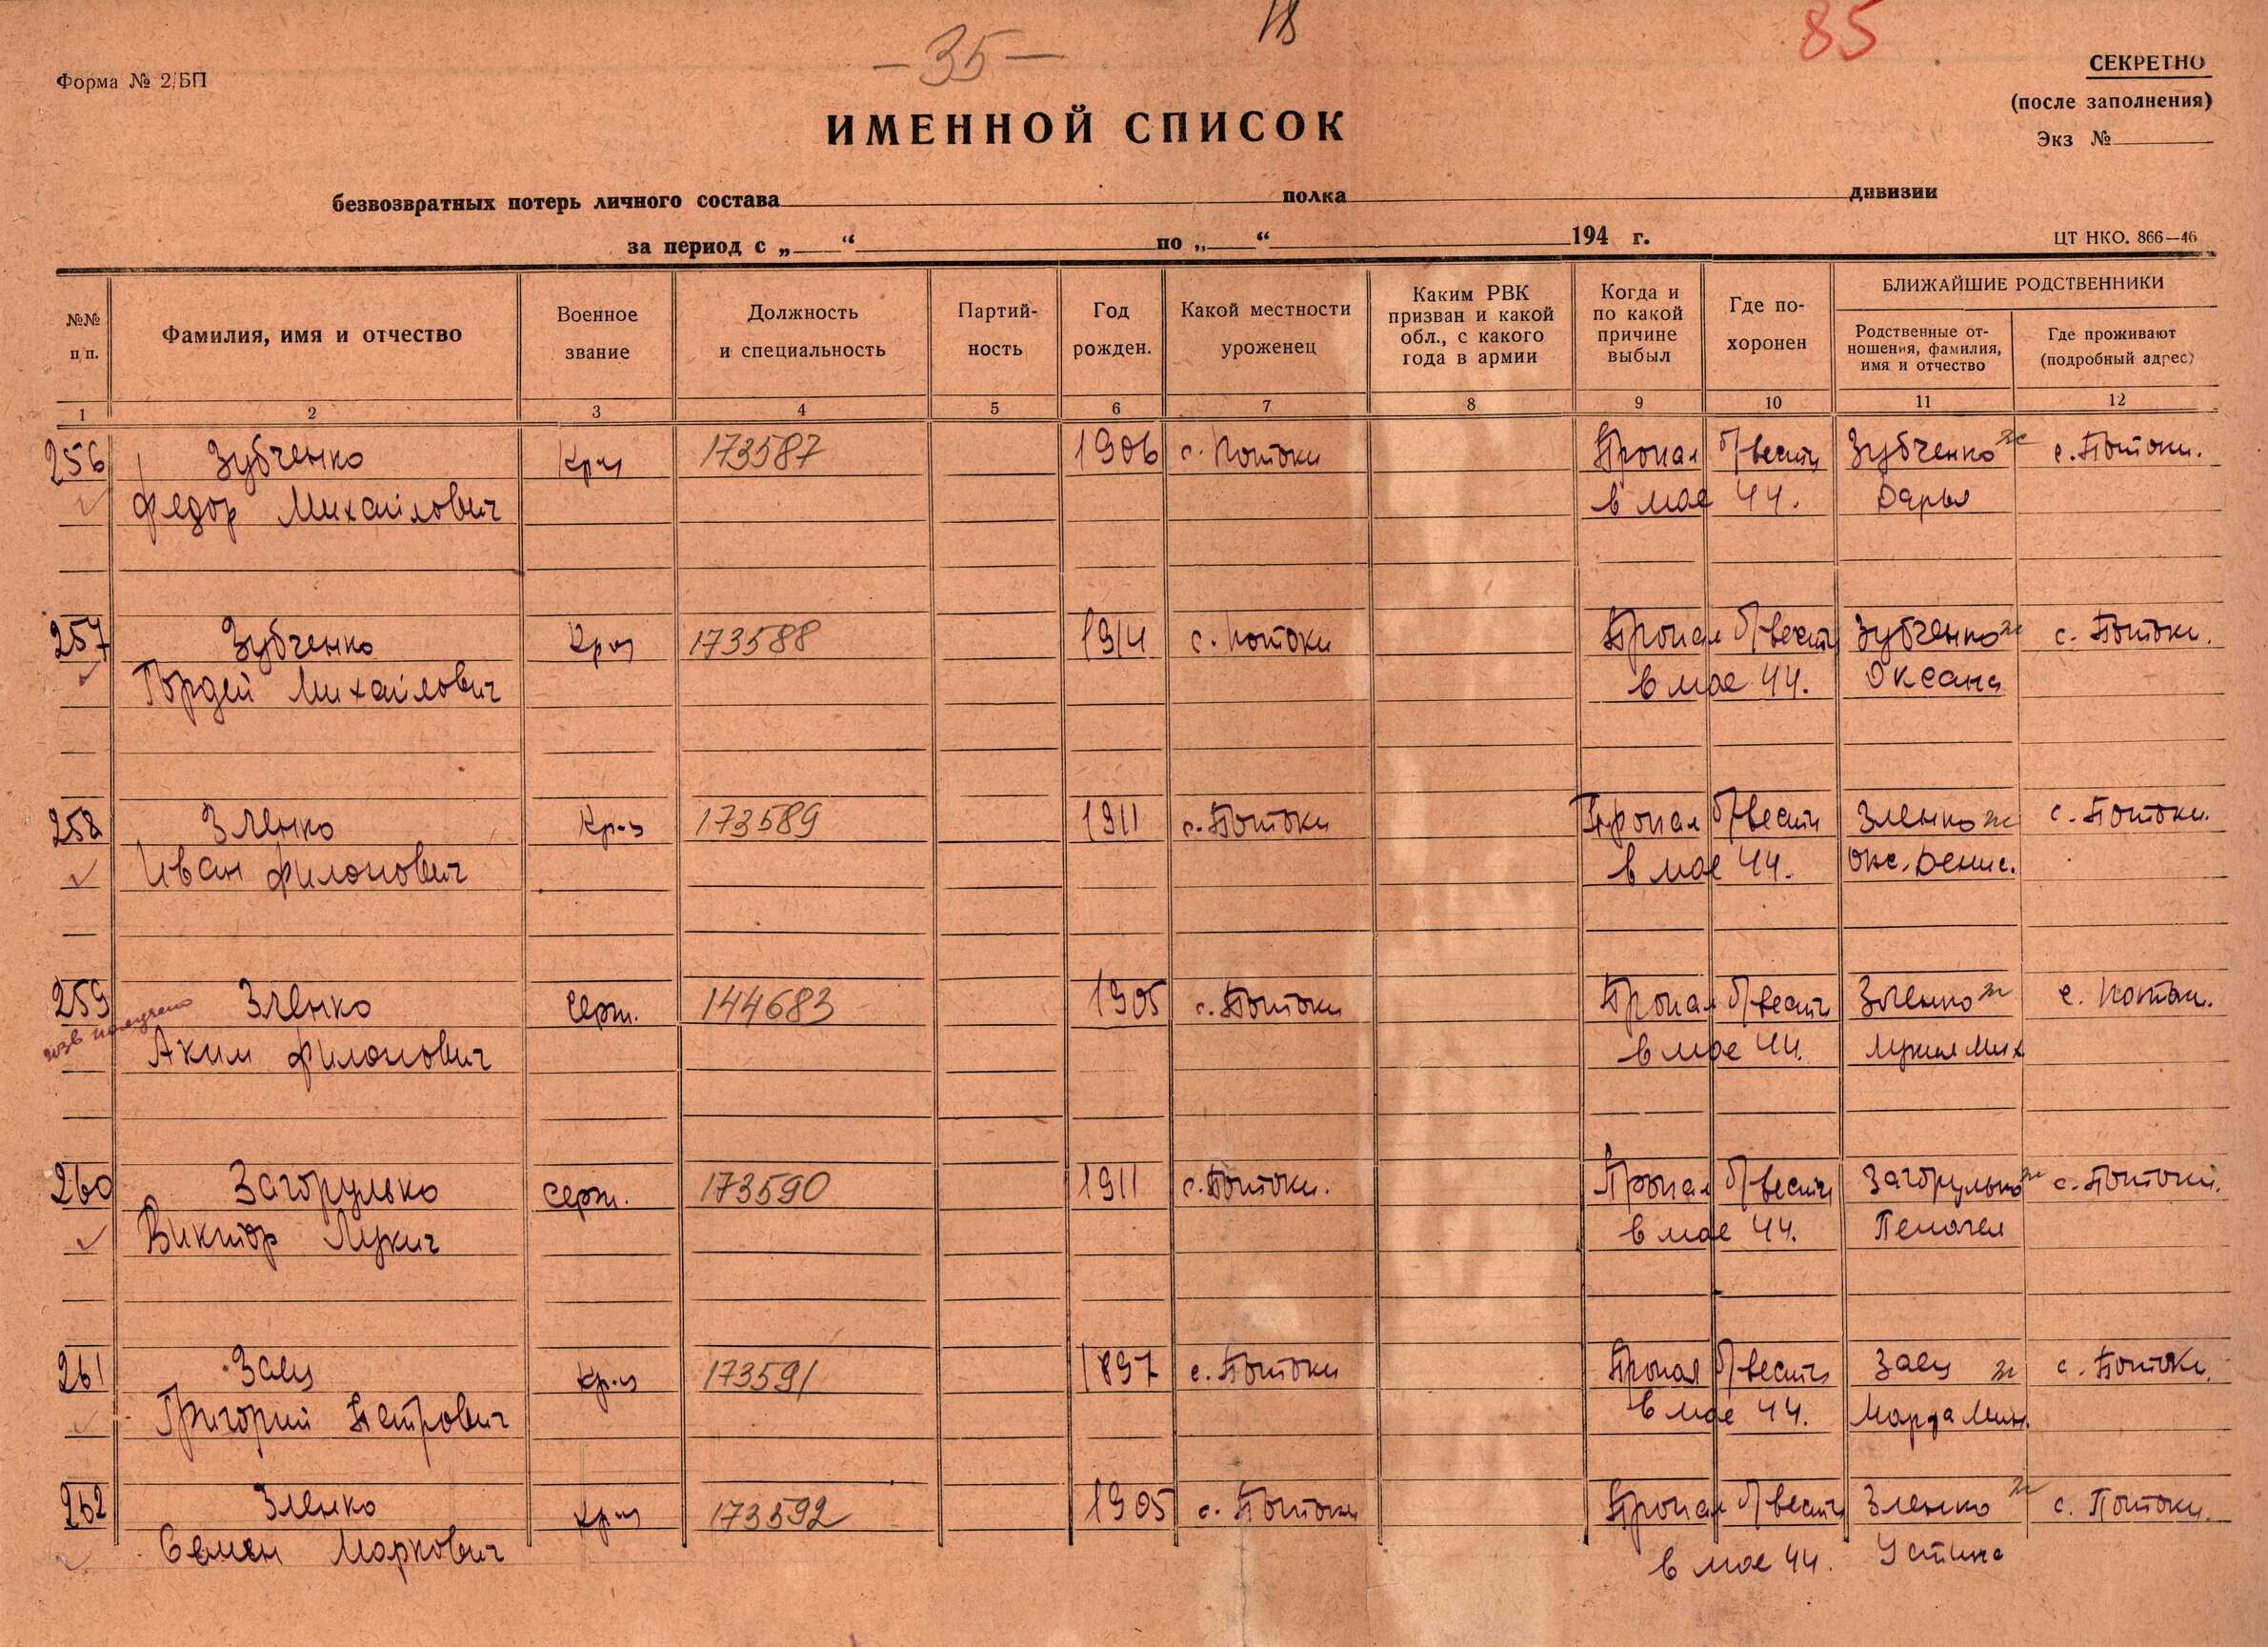 -35-
18
85
Форма № 2/БП
СЕКРЕТНО
(после заполнения)
Экз №
ИМЕННОЙ СПИСОК
безвозвратных потерь личного состава полка дивизии
за период с „ “ по „ “ 194 г.
ЦТ НКО. 866—46
№№ п/п.
Фамилия, имя и отчество
Военное звание
Должность и специальность
Партий- ность
Год рожден.
Какой местности уроженец
Каким РВК призван и какой обл., с какого года в армии
Когда и по какой причине выбыл
Где по- хоронен
БЛИЖАЙШИЕ РОДСТВЕННИКИ
Родственные от- ношения, фамилия, имя и отчество
Где проживают (подробный адрес)
1 2 3 4 5 6 7 8 9 10 11 12
256 Зубченко Кр-ц 173587 1906 с. Потоки Пропал б/вести Зубченко ж с. Потоки.
Федор Михайлович в мае 44. Дарья
257 Зубченко Кр-ц 173588 1914 с. Потоки Пропал б/вести Зубченко ж с. Потоки.
Гордей Михайлович в мае 44. Оксана
258 Зленко Кр-ц 173589 1911 с. Потоки Пропал б/вести Зленко ж с. Потоки.
Иван Филонович в мае 44. Окс. Денис.
259 Зленко Серж. 144683 1905 с. Потоки Пропал б/вести Зленко ж с. Потоки.
изв получено
Аким Филонович в мае 44. Лукия Мих
260 Загорулько Серж. 173590 1911 с. Потоки. Пропал б/вести Загорулько ж с. Потоки.
Виктор Лукич в мае 44. Пелагея
261 Заец Кр-ц 173591 1897 с. Потоки Пропал б/вести Заец ж с. Потоки.
Григорий Петрович в мае 44. Марфа Мин.
262 Зленко Кр-ц 173592 1905 с. Потоки Пропал б/вести Зленко ж с. Потоки.
Семен Маркович в мае 44. Устина